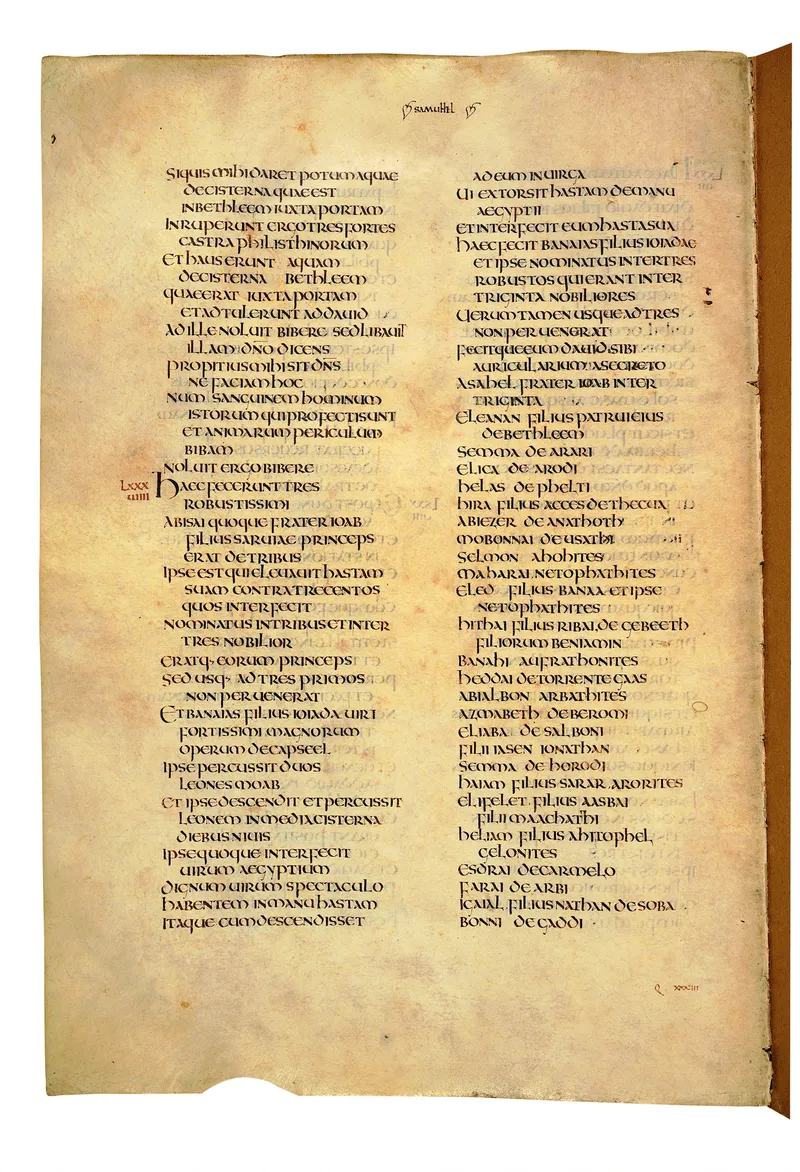 SAMUHEL
SIQUIS MIHI DARET POTUM AQUAE
DE CISTERNA QUAE EST
IN BETHLEEM IUXTA PORTAM
INRUPERUNT ERGO TRES FORTES
CASTRA PHILISTHINORUM
ET HAUSERUNT AQUAM
DE CISTERNA BETHLEEM
QUAE ERAT IUXTA PORTAM
ET ADTULERUNT AD DAUID
AD ILLE NOLUIT BIBERE SED LIBAUIT
ILLAM DÑO DICENS
PROPITIUS MIHI SIT DÑS
NE FACIAM HOC
NUM SANGUINEM HOMINUM
ISTORUM QUI PROFECTI SUNT
ET ANIMARUM PERICULUM
BIBAM
NOLUIT ERGO BIBERE
LXXX
UIIII
HAEC FECERUNT TRES
ROBUSTISSIMI
ABISAI QUOQUE FRATER IOAB
FILIUS SARUIAE PRINCEPS
ERAT DE TRIBUS
IPSE EST QUI ELEUAUIT HASTAM
SUAM CONTRA TRECENTOS
QUOS INTERFECIT
NOMINATUS IN TRIBUS ET INTER
TRES NOBILIOR
ERATQ· EORUM PRINCEPS
SED USQ· AD TRES PRIMOS
NON PERUENERAT
ET BANAIAS FILIUS IOIADA UIRI
FORTISSIMI MAGNORUM
OPERUM DE CAPSEEL
IPSE PERCUSSIT DUOS
LEONES MOAB
ET IPSE DESCENDIT ET PERCUSSIT
LEONEM IN MEDIA CISTERNA
DIEBUS NIUIS
IPSE QUOQUE INTERFECIT
UIRUM AEGYPTIUM
DIGNUM UIRUM SPECTACULO
HABENTEM IN MANU HASTAM
ITAQUE CUM DESCENDISSET
AD EUM IN UIRGA
UI EXTORSIT HASTAM DE MANU
AEGYPTII
ET INTERFECIT EUM HASTA SUA
HAEC FECIT BANAIAS FILIUS IOIADAE
ET IPSE NOMINATUS INTER TRES
ROBUSTOS QUI ERANT INTER
TRIGINTA NOBILIORES
UERUM TAMEN USQUE AD TRES
NON PERUENERAT
FECITQUE EUM DAUID SIBI
AURICULARIUM A SECRETO
ASAHEL FRATER IOAB INTER
TRIGINTA
ELEANAN FILIUS PATRUI EIUS
DE BETHLEEM
SEMMA DE ARARI
ELICA DE ARODI
HELAS DE PHELTI
HIRA FILIUS ACCES DE THECUA
ABIEZER DE ANATHOTH
MOBONNAI DE USATHI
SELMON AHOHITES
MAHARAI NETOPHATHITES
ELED FILIUS BANAA ET IPSE
NETOPHATHITES
HITHAI FILIUS RIBAI DE GEBEETH
FILIORUM BENIAMIN
BANAHI AUFRATHONITES
HEDDAI DE TORRENTE GAAS
ABIALBON ARBATHITES
AZMABETH DE BEROMI
ELIABA DE SALBONI
FILII IASEN IONATHAN
SEMMA DE HORODI
HAIAM FILIUS SARAR ARORITES
ELIFELET FILIUS AASBAI
FILII MAACHATHI
HELIAM FILIUS AHITOPHEL
GELONITES
ESDRAI DE CARMELO
FARAI DE ARBI
IGAIAL FILIUS NATHAN DE SOBA
BONNI DE GADDI